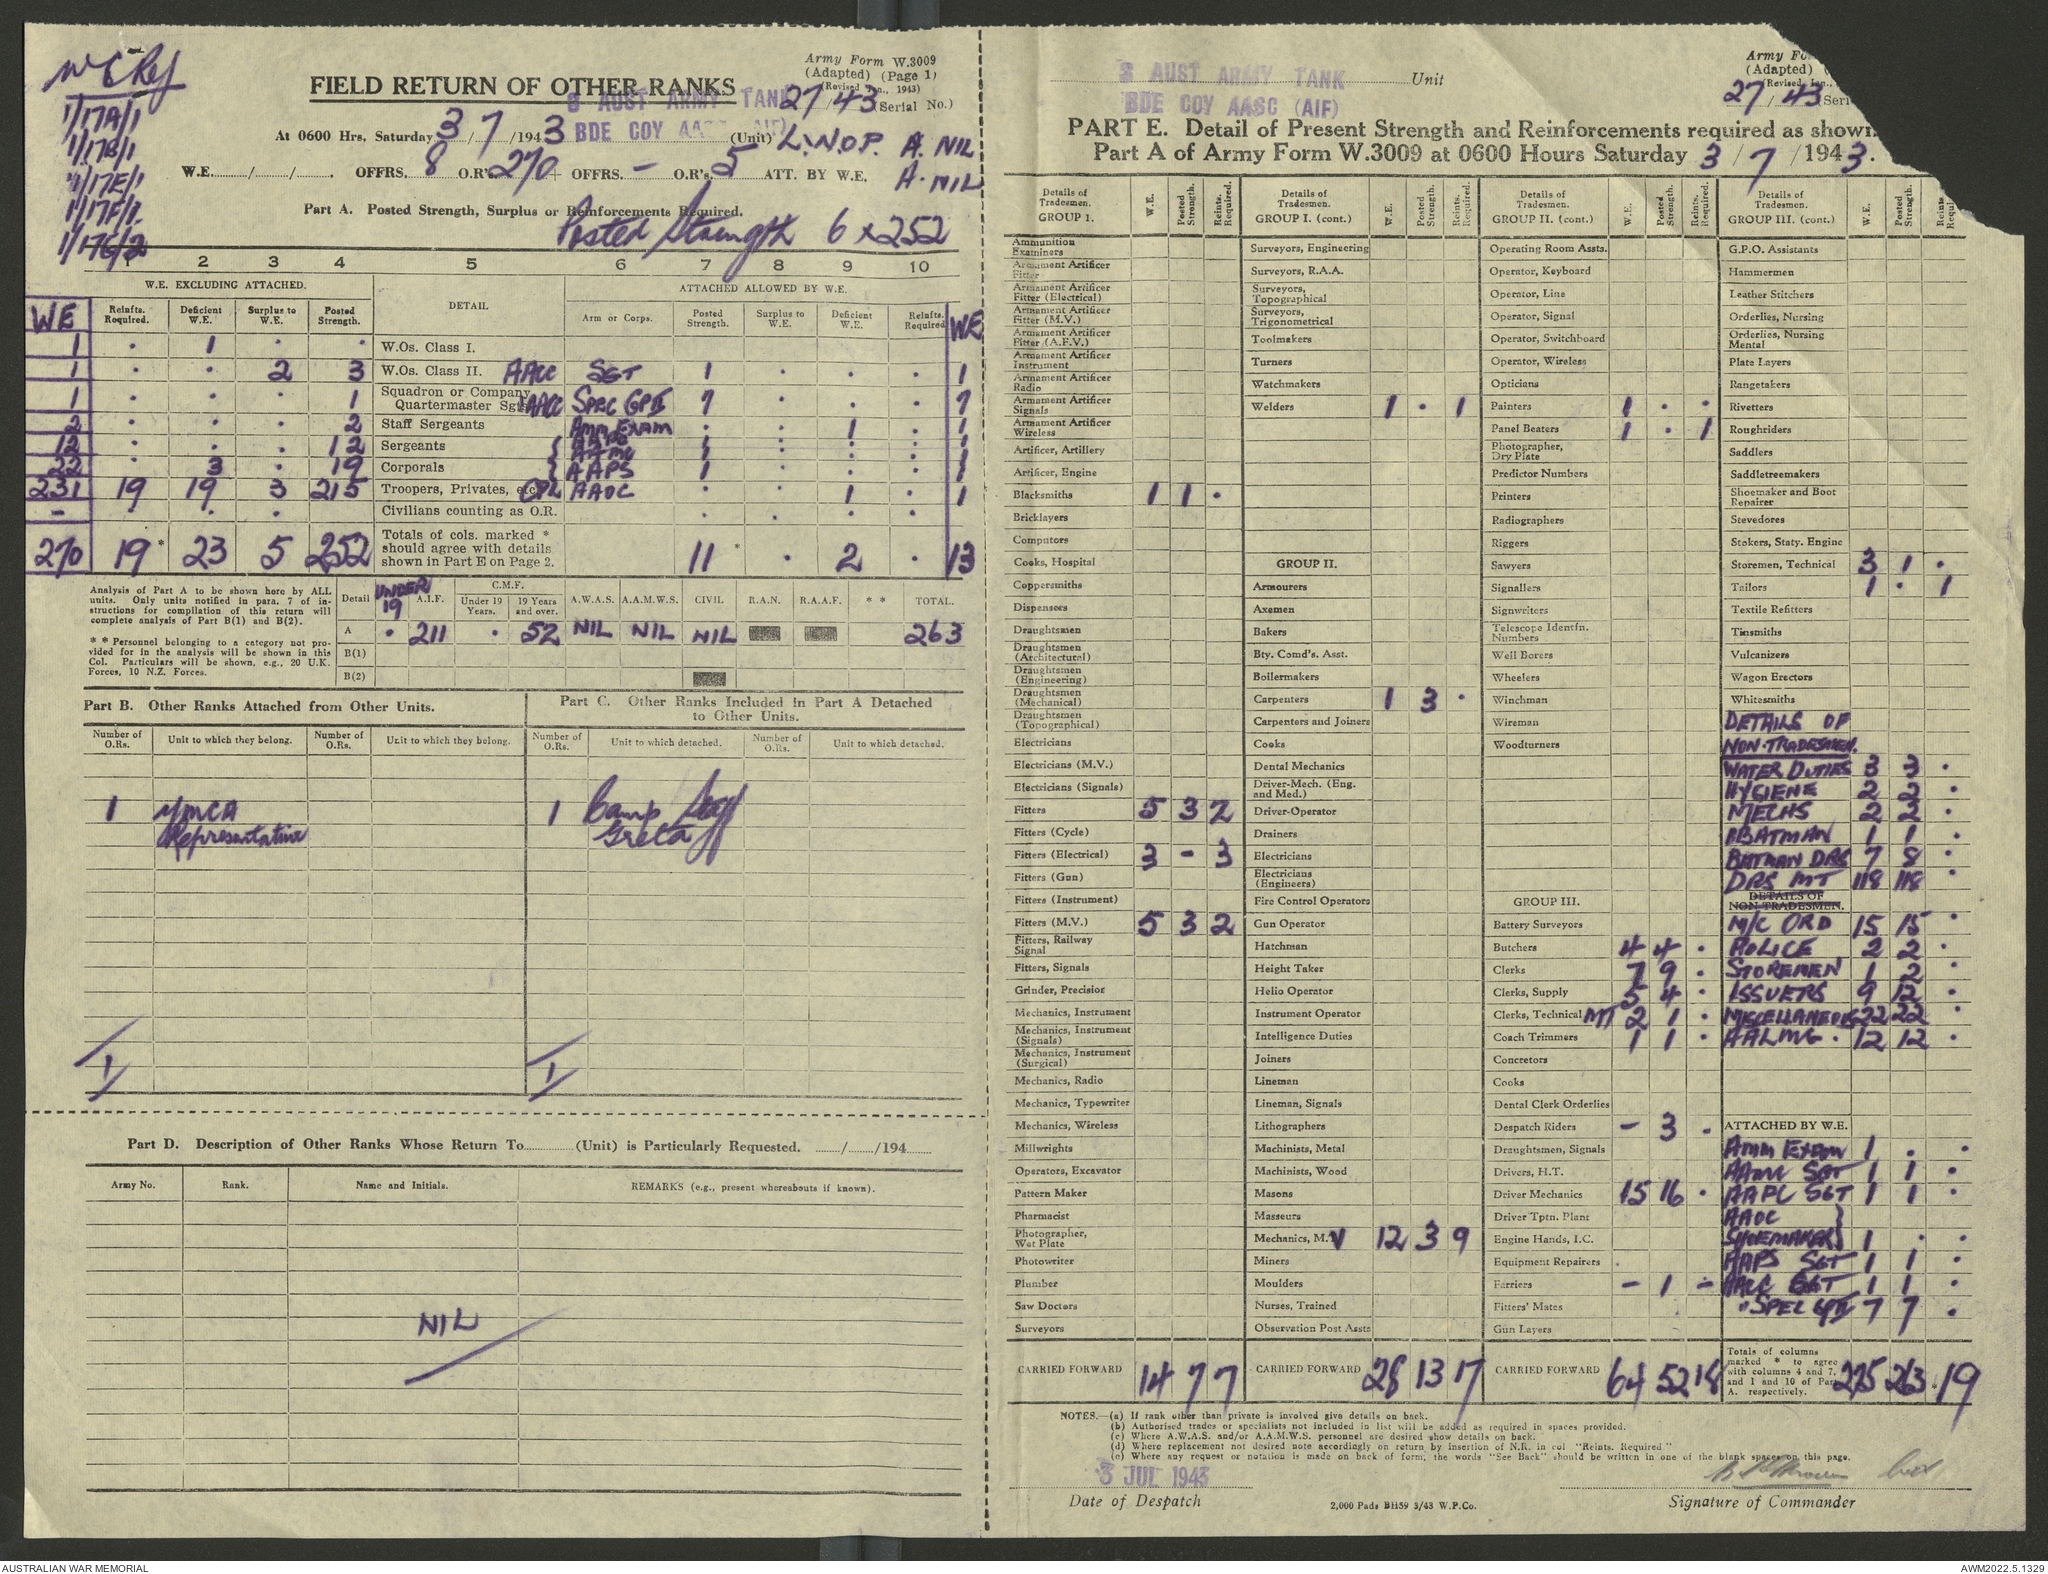 WE Ref
1/17A/1
1/17B/1
1/17E/1
1/17F/1
1/17G/2
Army Form W.3009
(Adapted) (Page 1)
(Revised Jan., 1943)
FIELD RETURN OF OTHER RANKS
27/43 (Serial No.)
3 AUST ARMY TANK
BDE COY AASC (AIF)
At 0600 Hrs. Saturday 3/7/1943 (Unit) L.N.O.P. A. NIL
W.E. ....../....../...... OFFRS. 8 O.R's. 270 + OFFRS. – O.R's. 5 ATT. BY W.E. A. NIL
Part A. Posted Strength, Surplus or Reinforcements Required.
Posted Strength 6 x 252
1 2 3 4 5 6 7 8 9 10
W.E. EXCLUDING ATTACHED. DETAIL ATTACHED ALLOWED BY W.E.
WE Reinfts. Required. Deficient W.E. Surplus to W.E. Posted Strength. Arm or Corps. Posted Strength. Surplus to W.E. Deficient W.E. Reinfts. Required WE
1 . 1 . . W.Os. Class I.
1 . . 2 3 W.Os. Class II. AACC SGT 1 . . . 1
1 . . . 1 Squadron or Company Quartermaster Sgts. AACC SPEC GP II 7 . . . 7
2 . . . 2 Staff Sergeants AMM EXAM . . 1 . 1
12 . . . 12 Sergeants { AAPC 1 . . . 1
AAMC 1 . . . 1
22 . 3 . 19 Corporals { AAPS 1 . . . 1
231 19 19 3 215 Troopers, Privates, etc. CPL AAOC . . 1 . 1
– . . . Civilians counting as O.R. . . . .
270 19 * 23 5 252 Totals of cols. marked * should agree with details shown in Part E on Page 2. 11 * . 2 . 13
Analysis of Part A to be shown here by ALL
units. Only units notified in para. 7 of in-
structions for compilation of this return will
complete analysis of Part B(1) and B(2).
* * Personnel belonging to a category not pro-
vided for in the analysis will be shown in this
Col. Particulars will be shown, e.g., 20 U.K.
Forces, 10 N.Z. Forces.
Detail UNDER 19 A.I.F. C.M.F. Under 19 Years. 19 Years and over. A.W.A.S. A.A.M.W.S. CIVIL R.A.N. R.A.A.F. * * TOTAL.
A . 211 . 52 NIL NIL NIL 263
B(1)
B(2)
Part B. Other Ranks Attached from Other Units.
Number of O.Rs. Unit to which they belong. Number of O.Rs. Unit to which they belong.
1 YMCA
Representative
1
Part C. Other Ranks Included in Part A Detached
to Other Units.
Number of O.Rs. Unit to which detached. Number of O.Rs. Unit to which detached.
1 Camp Staff
Greta
1
Part D. Description of Other Ranks Whose Return To............ (Unit) is Particularly Requested. ....../....../194......
Army No. Rank. Name and Initials. REMARKS (e.g., present whereabouts if known).
NIL
3 AUST ARMY TANK Unit
BDE COY AASC (AIF)
Army Fo
(Adapted)
(Revised Jan.,
27/43 Seri
PART E. Detail of Present Strength and Reinforcements required as shown
Part A of Army Form W.3009 at 0600 Hours Saturday 3/7/1943.
Details of Tradesmen. GROUP 1. W.E. Posted Strength. Reints. Required.
Ammunition Examiners
Armament Artificer Fitter
Armament Artificer Fitter (Electrical)
Armament Artificer Fitter (M.V.)
Armament Artificer Fitter (A.F.V.)
Armament Artificer Instrument
Armament Artificer Radio
Armament Artificer Signals
Armament Artificer Wireless
Artificer, Artillery
Artificer, Engine
Blacksmiths 1 1 .
Bricklayers
Computors
Cooks, Hospital
Coppersmiths
Dispensers
Draughtsmen
Draughtsmen (Architectural)
Draughtsmen (Engineering)
Draughtsmen (Mechanical)
Draughtsmen (Topographical)
Electricians
Electricians (M.V.)
Electricians (Signals)
Fitters 5 3 2
Fitters (Cycle)
Fitters (Electrical) 3 – 3
Fitters (Gun)
Fitters (Instrument)
Fitters (M.V.) 5 3 2
Fitters, Railway Signal
Fitters, Signals
Grinder, Precision
Mechanics, Instrument
Mechanics, Instrument (Signals)
Mechanics, Instrument (Surgical)
Mechanics, Radio
Mechanics, Typewriter
Mechanics, Wireless
Millwrights
Operators, Excavator
Pattern Maker
Pharmacist
Photographer, Wet Plate
Photowriter
Plumber
Saw Doctors
Surveyors
CARRIED FORWARD 14 7 7
Details of Tradesmen. GROUP I. (cont.) W.E. Posted Strength. Reints. Required.
Surveyors, Engineering
Surveyors, R.A.A.
Surveyors, Topographical
Surveyors, Trigonometrical
Toolmakers
Turners
Watchmakers
Welders 1 . 1
GROUP II.
Armourers
Axemen
Bakers
Bty. Comd's. Asst.
Boilermakers
Carpenters 1 3 .
Carpenters and Joiners
Cooks
Dental Mechanics
Driver-Mech. (Eng. and Med.)
Driver-Operator
Drainers
Electricians
Electricians (Engineers)
Fire Control Operators
Gun Operator
Hatchman
Height Taker
Helio Operator
Instrument Operator
Intelligence Duties
Joiners
Lineman
Lineman, Signals
Lithographers
Machinists, Metal
Machinists, Wood
Masons
Masseurs
Mechanics, M.V 12 3 9
Miners
Moulders
Nurses, Trained
Observation Post Assts
CARRIED FORWARD 28 13 17
Details of Tradesmen. GROUP II. (cont.) W.E. Posted Strength. Reints. Required.
Operating Room Assts.
Operator, Keyboard
Operator, Line
Operator, Signal
Operator, Switchboard
Operator, Wireless
Opticians
Painters 1 . .
Panel Beaters 1 . 1
Photographer, Dry Plate
Predictor Numbers
Printers
Radiographers
Riggers
Sawyers
Signallers
Signwriters
Telescope Identfn. Numbers
Well Borers
Wheelers
Winchman
Wireman
Woodturners
GROUP III.
Battery Surveyors
Butchers 4 4 .
Clerks 7 9 .
Clerks, Supply 5 4 .
Clerks, Technical MT 2 1 .
Coach Trimmers 1 1 .
Concretors
Cooks
Dental Clerk Orderlies
Despatch Riders – 3 .
Draughtsmen, Signals
Drivers, H.T.
Driver Mechanics 15 16 .
Driver Tptn. Plant
Engine Hands, I.C.
Equipment Repairers
Farriers – 1 –
Fitters' Mates
Gun Layers
CARRIED FORWARD 64 52 18
Details of Tradesmen. GROUP III. (cont.) W.E. Posted Strength. Reints. Requir
G.P.O. Assistants
Hammermen
Leather Stitchers
Orderlies, Nursing
Orderlies, Nursing Mental
Plate Layers
Rangetakers
Rivetters
Roughriders
Saddlers
Saddletreemakers
Shoemaker and Boot Repairer
Stevedores
Stokers, Staty. Engine
Storemen, Technical 3 1 .
Tailors 1 . 1
Textile Refitters
Tinsmiths
Vulcanizers
Wagon Erectors
Whitesmiths
DETAILS OF
NON-TRADESMEN.
WATER DUTIES 3 3 .
HYGIENE 2 2 .
MECHS 2 2 .
BATMAN 1 1 .
BATMAN DRS 7 8 .
DRS MT 118 118 .
DETAILS OF
NON-TRADESMEN.
M/C ORD 15 15 .
POLICE 2 2 .
STOREMEN 1 2 .
ISSUERS 9 12 .
MISCELLANEOUS 22 22 .
AALMG . 12 12 .
ATTACHED BY W.E.
AMM EXAM 1 . .
AAMC SGT 1 1 .
AAPC SGT 1 1 .
AAOC }
SHOEMAKERS } 1 . .
AAPS SGT 1 1 .
AACC SGT 1 1 .
" SPEC GP II 7 7 .
Totals of columns marked * to agree with columns 4 and 7, and 1 and 10 of Part A. respectively. 275 263 * 19
NOTES.—(a) If rank other than private is involved give details on back.
(b) Authorised trades or specialists not included in list will be added as required in spaces provided.
(c) Where A.W.A.S. and/or A.A.M.W.S. personnel are desired show details on back.
(d) Where replacement not desired note accordingly on return by insertion of N.R. in col "Reints. Required."
(e) Where any request or notation is made on back of form, the words "See Back" should be written in one of the blank spaces on this page.
3 JUL 1943
Date of Despatch
2,000 Pads BH59 3/43 W.P.Co.
Signature of Commander
AUSTRALIAN WAR MEMORIAL
AWM2022.5.1329